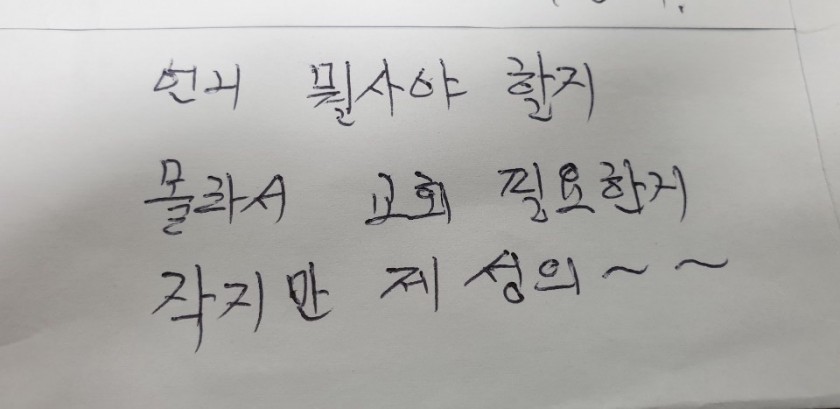 언니 뭘사야 할지
몰라서 교회 필요한거
작지만 제 성의~~